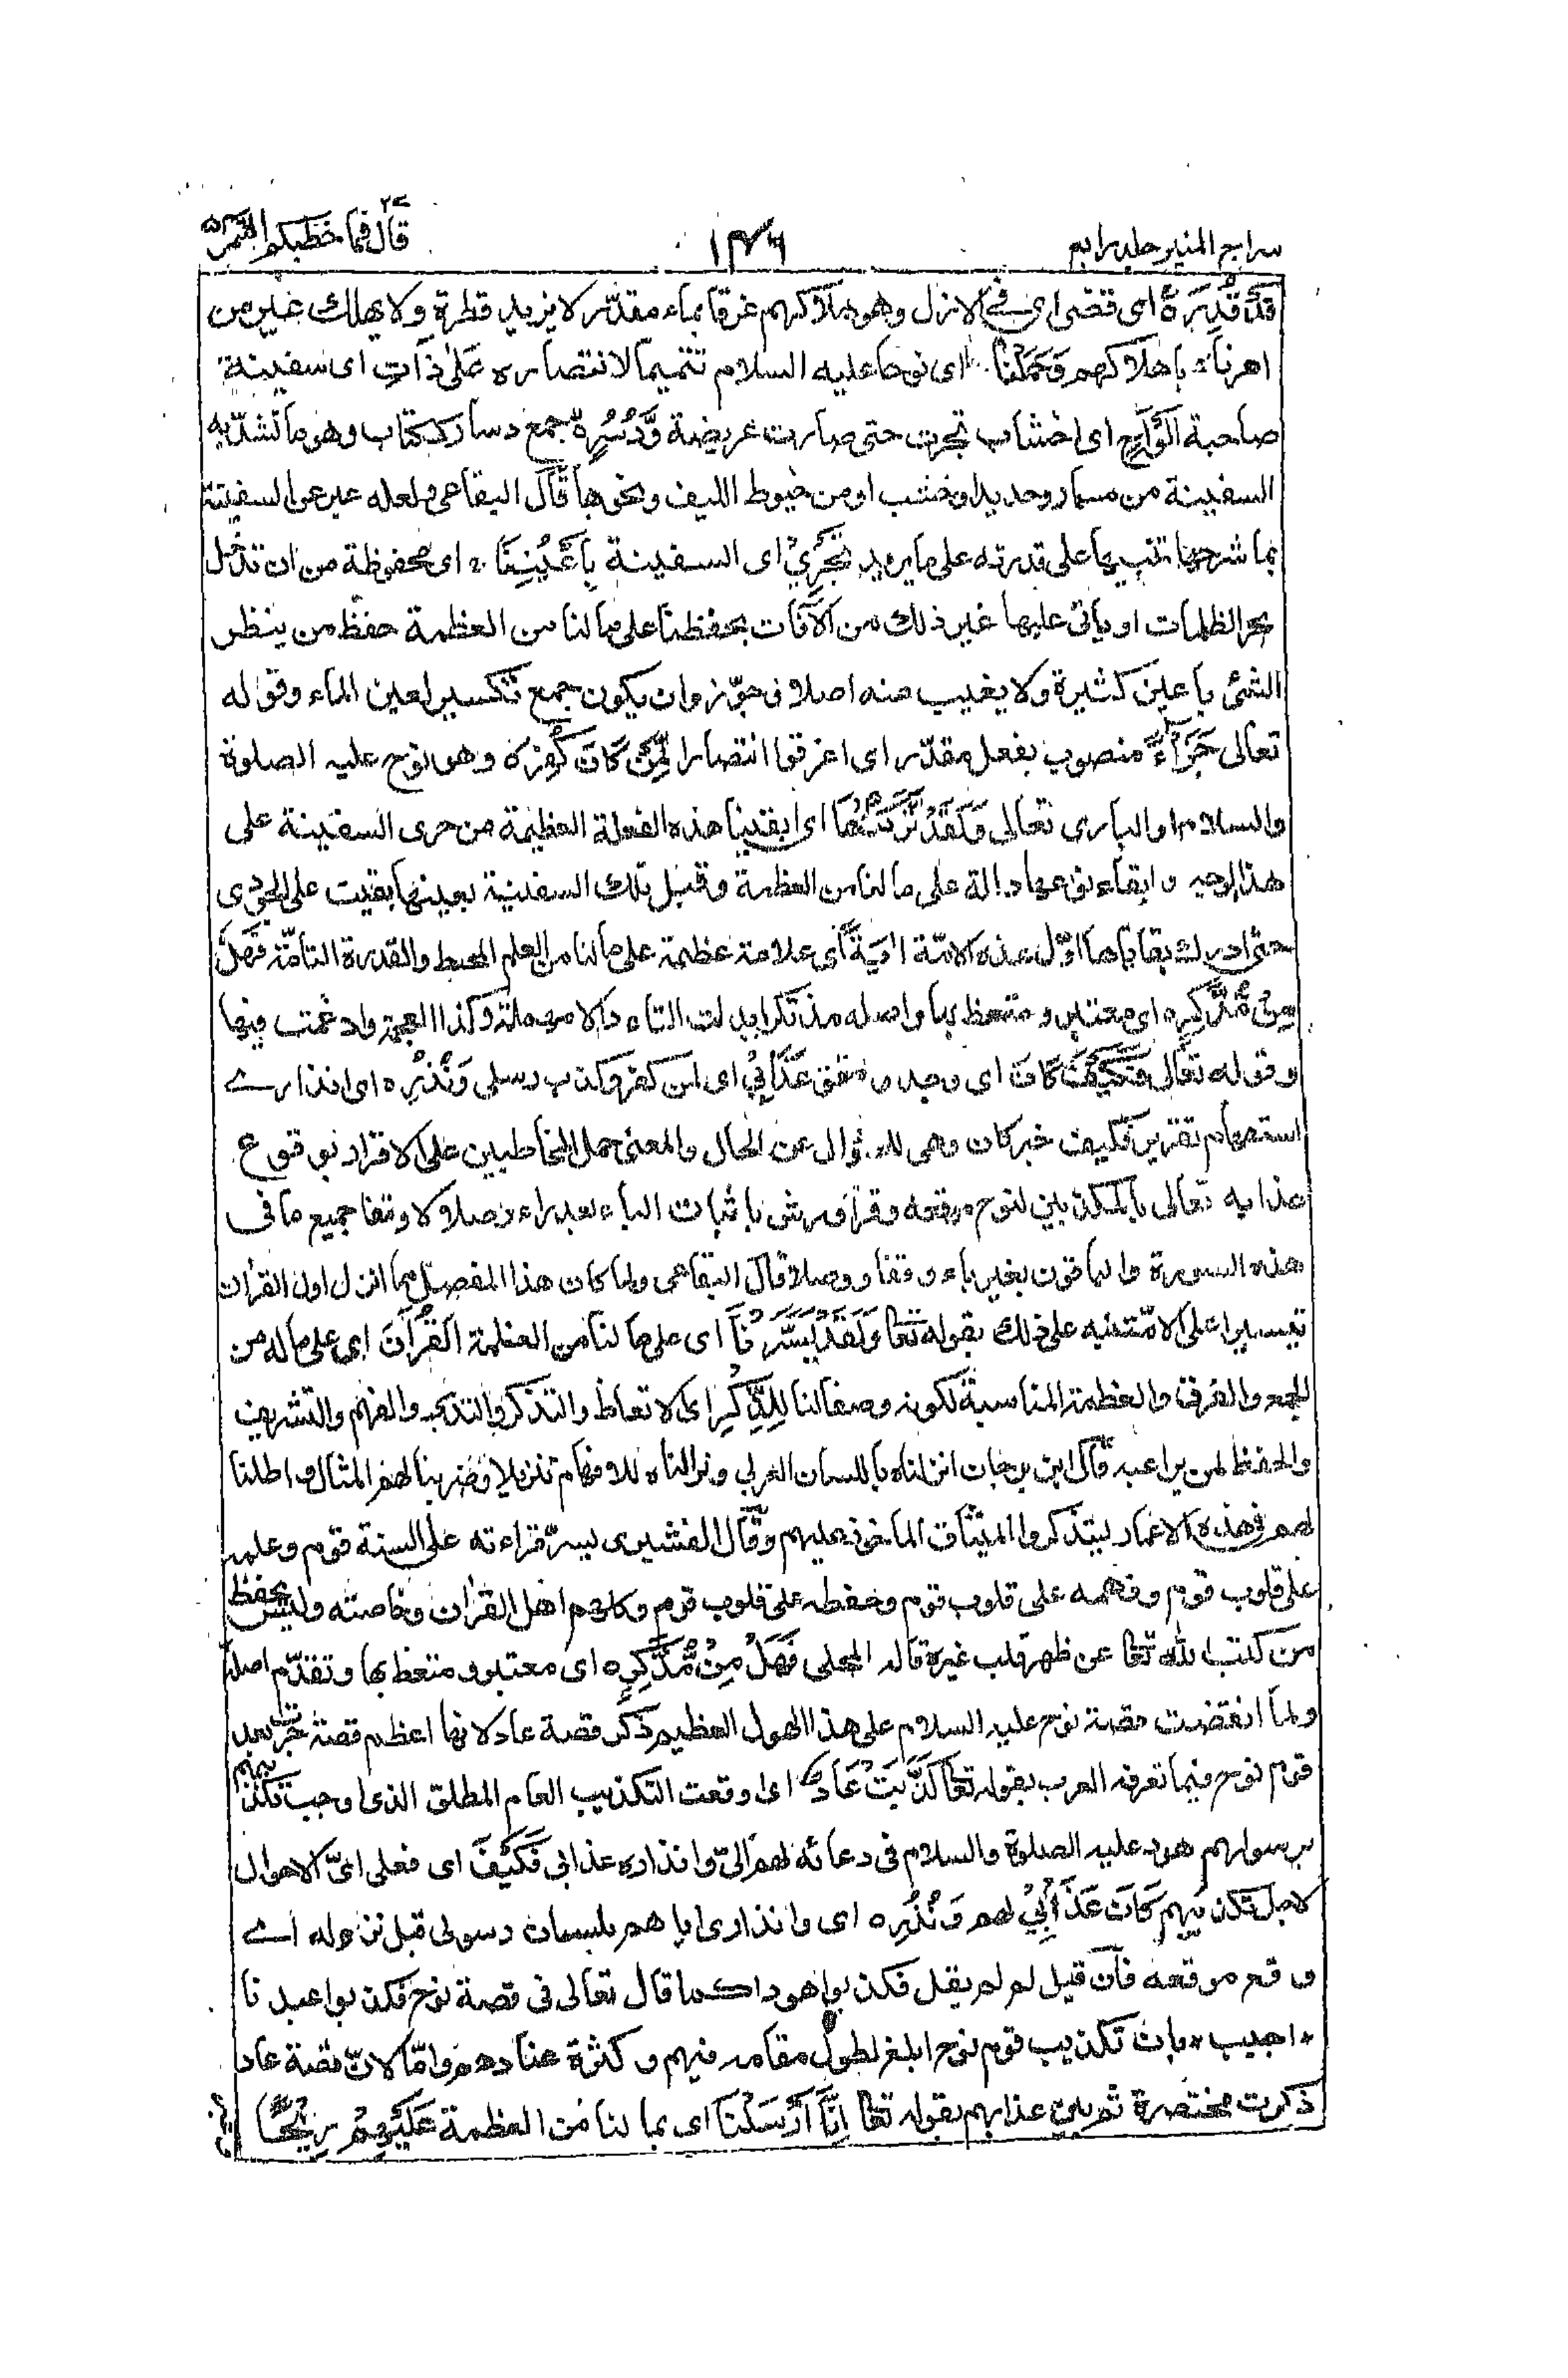 سراج المنير جلد رابع
١٤٦
قال فما خطبكم ٢٧ القمر ٥٤
قَدْ قُدِرَ ه اى قضى اى فى الازل وهو هلاكهم غرقا بماء مقدّر لا يزيد قطرة ولا يهلك غير من
امرناه باهلاكهم وَحَمَلْنٰهُ اى نوحا عليه السلام تتميما لانتصاره عَلٰى ذَاتِ اى سفينة
صاحبة اَلْوَاحٍ اى اخشاب نجرت حتى صارت عريضة وَّدُسُرٍ ه جمع دسار ككتاب وهو ما تشدّ به
السفينة من مسمار وحديد او خشب او من خيوط الليف ونحوها قال البقاعى ولعله عبر عن السفينة
بما شرحها تنبيها على قدرته على ما يريد تَجْرِيْ اى السفينة بِاَعْيُنِنَا ۚ اى محفوظة من ان تدخل
بحر الظلمات او ياتى عليها غير ذلك من الآفات بحفظنا على ما لنا من العظمة حفظ من ينظر
الشئ باعين كثيرة ولا يغيب عنه اصلا وجوّز وان يكون جمع تكسير لعين الماء وقوله
تعالى جَزَآءً منصوب بفعل مقدّر اى اغرقوا انتصارا لِّمَنْ كَانَ كُفِرَ ه وهو نوح عليه الصلوة
والسلام او البارى تعالى وَلَقَدْ تَّرَكْنٰهَآ اى ابقينا هذه الفعلة العظيمة من جرى السفينة على
هذا الوجه وابقاء نوعها دالة على ما لنا من العظمة وقيل تلك السفينة بعينها بقيت على الجودى
حتى ادرك بقاياها اوّل هذه الامّة اٰيَةً اى علامة عظيمة على ما لنا من العلم المحيط والقدرة التامّة فَهَلْ
مِنْ مُّدَّكِرٍ ه اى معتبر ومتعظ بها واصله مذتكر ابدلت التاء دالا مهملة وكذا المعجمة وادغمت فيها
وقوله تعالى فَكَيْفَ كَانَ اى وجد وتحقق عَذَابِيْ اى لمن كفر وكذب رسلى وَنُذُرِ ه اى انذارے
استفهام تقرير فكيف خبر كان وهى للسؤال عن الحال والمعنى حمل المخاطبين على الاقرار بوقوع
عذابه تعالى بالمكذبين لنوح موقعه وقرأ ورش باثبات الياء بعد الراء وصلا لا وقفا جميع ما فى
هذه السورة والباقون بغير ياء وقفا ووصلا قال البقاعى ولما كان هذا المفصل مما انزل اول القرآن
تيسيرا على الامّة نبه على ذلك بقوله تعا وَلَقَدْ يَسَّرْنَا اى على ما لنا من العظمة الْقُرْاٰنَ اى على ما له من
الجمع والفرق والعظمة المناسبة لكونه وصفا لنا لِلذِّكْرِ اى لاتعاظ والتذكر والتدبر والفهم والتشريف
والحفظ لمن يراعيه قال ابن برجان انزلناه باللسان العربى ونزلناه للافهام تنزيلا وضربنا لهم المثال واطلنا
لهم فى هذه الاعمار ليتذكروا الميثاق الماخوذ عليهم وقال القشيرى يسرّ قراءته على السنة قوم وعلمه
على قلوب قوم وفهمه على قلوب قوم وحفظه على قلوب قوم وكلهم اهل القرآن وخاصته وليس يحفظ
من كتب الله تعا عن ظهر قلب غيره قاله المحلى فَهَلْ مِنْ مُّدَّكِرٍ ه اى معتبر ومتعظ بها وتقدّم اصله
ولما انقضت قصة نوح عليه السلام على هذا الهول العظيم ذكر قصة عاد لانها اعظم قصة جرت بعد
قوم نوح فيما تعرفه العرب بقوله تعا كَذَّبَتْ عَادٌ اى اوقعت التكذيب العام المطلق الذى اوجب تكذيبهم
برسولهم هود عليه الصلوة والسلام فى دعائه لهم الىّ وانذاره عذابى فَكَيْفَ اى فعلى اىّ الاحوال
لاجل تكذيبهم كَانَ عَذَابِيْ لهم وَنُذُرِ ه اى وانذارى اياهم بلسان رسولى قبل نزوله اے
وقع موقعه فان قيل لم لم يقل فكذبوا هودا كما قال تعالى فى قصة نوح فكذبوا عبدنا
اجيب بان تكذيب قوم نوح ابلغ لطول مقامه فيهم وكثرة عنادهم واما لانّ قصة عاد
ذكرت مختصرة ثم بين عذابهم بقوله تعا اِنَّآ اَرْسَلْنَا اى بما لنا من العظمة عَلَيْهِمْ رِيْحًا